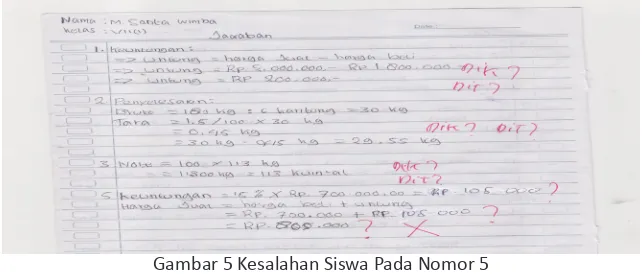 Nama : M. Santa Wimba
Kelas : VII(1)
Jawaban
1. Keuntungan :
=> untung = harga jual - harga beli
=> untung = RP 2.000.000.- RP 1.800.000 Dik ?
=> untung = RP 200.000.- Dit ?
2. Penyelesaian :
= 30 kg
Tara = 1.5/100 x 30 kg
= 0.45 kg Dik ? Dit ?
= 30 kg - 0.45 kg = 29.55 kg
3. Dik ?
Dit ?
5. Keuntungan = 15 % x RP. 700.000.00 = RP. 105 000 ?
Harga Jual = harga beli + untung
= RP. 700.000 + RP. 105 000 ?
= RP. 805.000 ?
Gambar 5 Kesalahan Siswa Pada Nomor 5